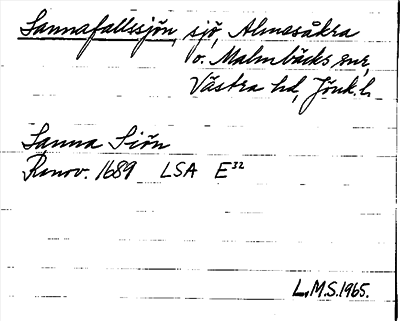 Sannafallssjön, sjö, Almesåkra
o. Malmbäcks snr,
Västra hd, Jönk.l.
Sanna Siön
Renov. 1689 LSA E³²
L.M.S. 1965.